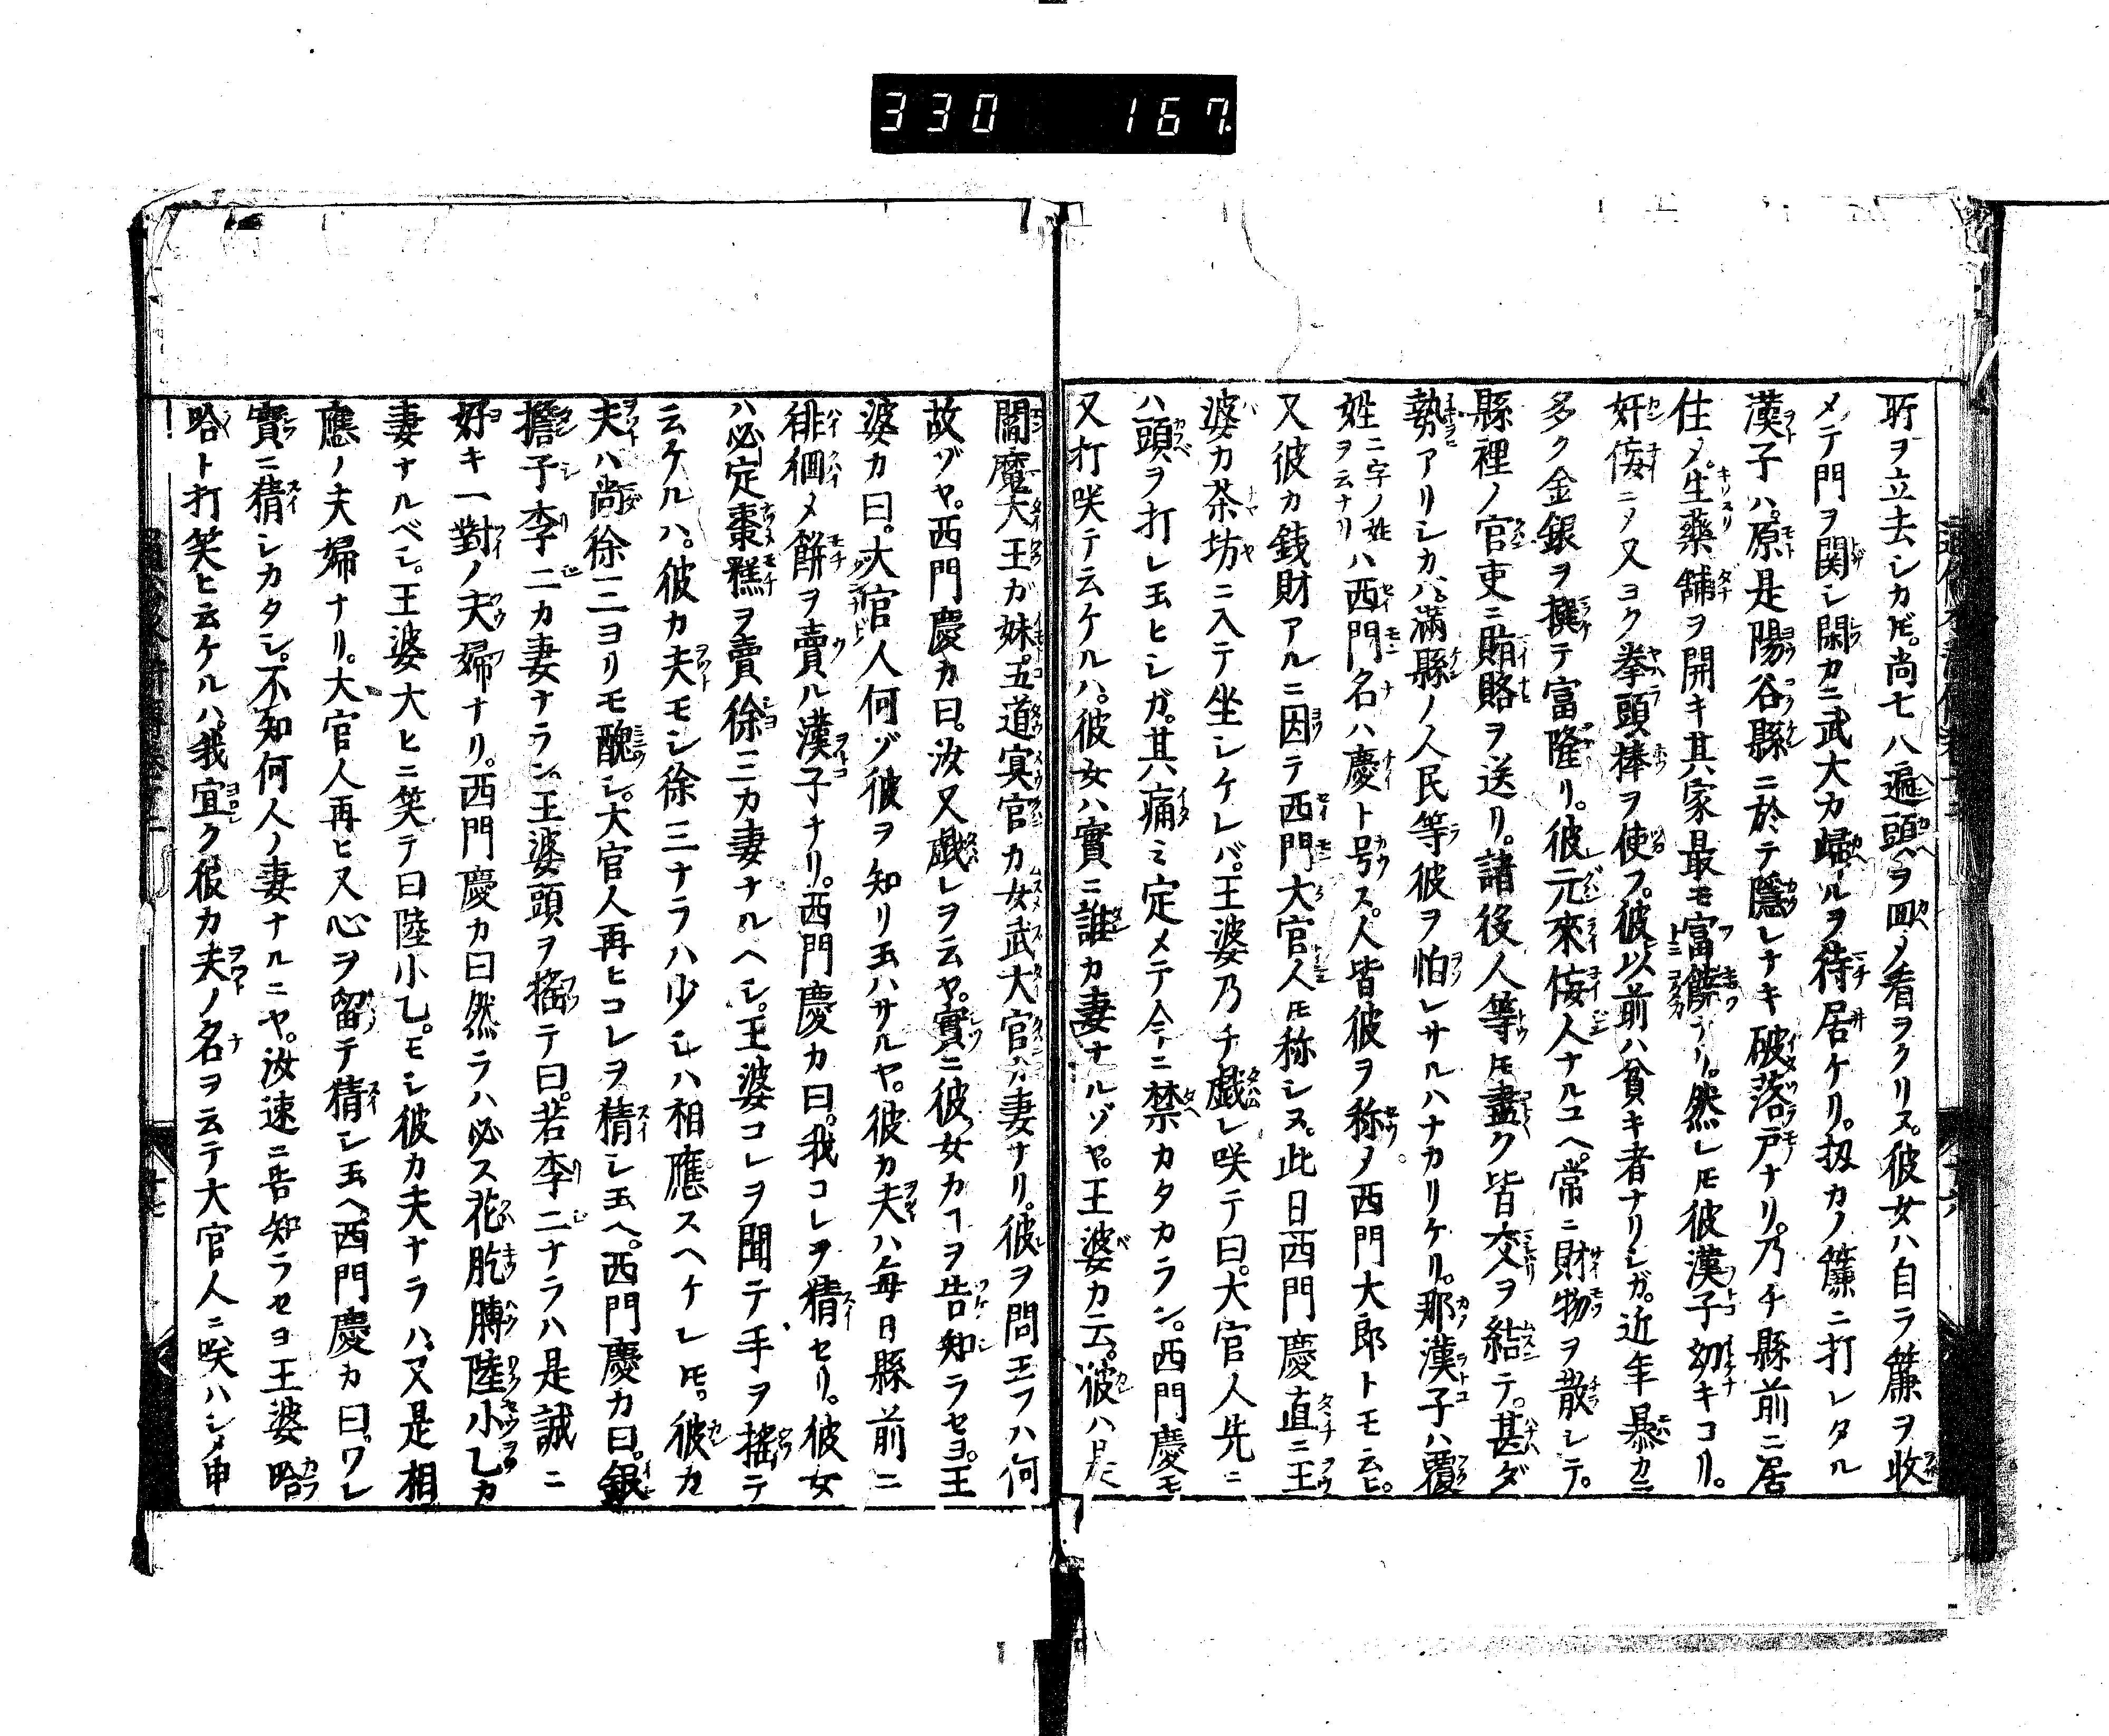 330 167
所ヲ立去シカ𪜈。尚七八遍頭ヲ回メ看ヲクリヌ。彼女ハ自ラ簾ヲ收
メテ門ヲ関シ閑カニ武大カ歸ルヲ待居ケリ。扨カノ簾ニ打レタル
漢子ハ。原是陽谷縣ニ於テ隱レナキ破落戸ナリ。乃チ縣前ニ居
住メ。生藥舗ヲ開キ其家最モ富饒ナリ。然レ𪜈彼漢子幼キコリ。
奸侫ニメ又ヨク拳頭棒ヲ使フ。彼以前ハ貧キ者ナリシガ。近年暴カニ
多ク金銀ヲ撰テ富隆リ。彼元來侫人ナルユヘ。常ニ財物ヲ散シテ。
縣裡ノ官吏ニ賄賂ヲ送リ。諸役人等𪜈盡ク皆交ヲ結テ。甚ダ
勢アリシカハ。滿縣ノ人民等彼ヲ怕レサルハナカリケリ。那漢子ハ覆
姓二字ノ姓ヲ云ナリハ西門名ハ慶ト号ス。人皆彼ヲ称メ西門大郎トモ云ヒ。
又彼カ銭財アルニ因テ西門大官人𪜈称シヌ。此日西門慶直ニ王
婆カ茶坊ニ入テ坐シケレバ。王婆乃チ戯レ咲テ曰。大官人先ニ
ハ頭ヲ打レ玉ヒシガ。其痛ミ定メテ今ニ禁カタカラン。西門慶モ
又打咲テ云ケルハ。彼女ハ實ニ誰カ妻ナルゾヤ。王婆カ云。彼ハ是
閻魔大王ガ妹。五道冥官カ女武大官カ妻ナリ。彼ヲ問玉フハ何
故ゾヤ。西門慶カ曰。汝又戯レヲ云ヤ。實ニ彼女カヿヲ告知ラセヨ。王
婆カ曰。大官人何ゾ彼ヲ知リ玉ハサルヤ。彼カ夫ハ毎日縣前ニ
徘徊メ餅ヲ賣ル漢子ナリ。西門慶カ曰。我コレヲ猜セリ。彼女
ハ必定棗糕ヲ賣徐三カ妻ナルヘシ。王婆コレヲ聞テ手ヲ搖テ
云ケルハ。彼カ夫モシ徐三ナラハ少シハ相應スヘケレ𪜈。彼カ
夫ハ尚徐三ヨリモ醜シ。大官人再ヒコレヲ猜シ玉ヘ。西門慶カ曰。銀
擔子李二カ妻ナラン。王婆頭ヲ搖テ曰。若李二ナラハ是誠ニ
好キ一對ノ夫婦ナリ。西門慶カ曰然ラハ必ス花肐膊陸小乙カ
妻ナルベシ。王婆大ヒニ笑テ曰陸小乙。モシ彼カ夫ナラハ。又是相
應ノ夫婦ナリ。大官人再ヒ又心ヲ留テ猜シ玉ヘ西門慶カ曰。ワレ
實ニ猜シカタシ。不知何人ノ妻ナルニヤ。汝速ニ告知ラセヨ王婆哈
哈ト打笑ヒ云ケルハ。我宜ク彼カ夫ノ名ヲ云テ大官人ニ咲ハシメ申